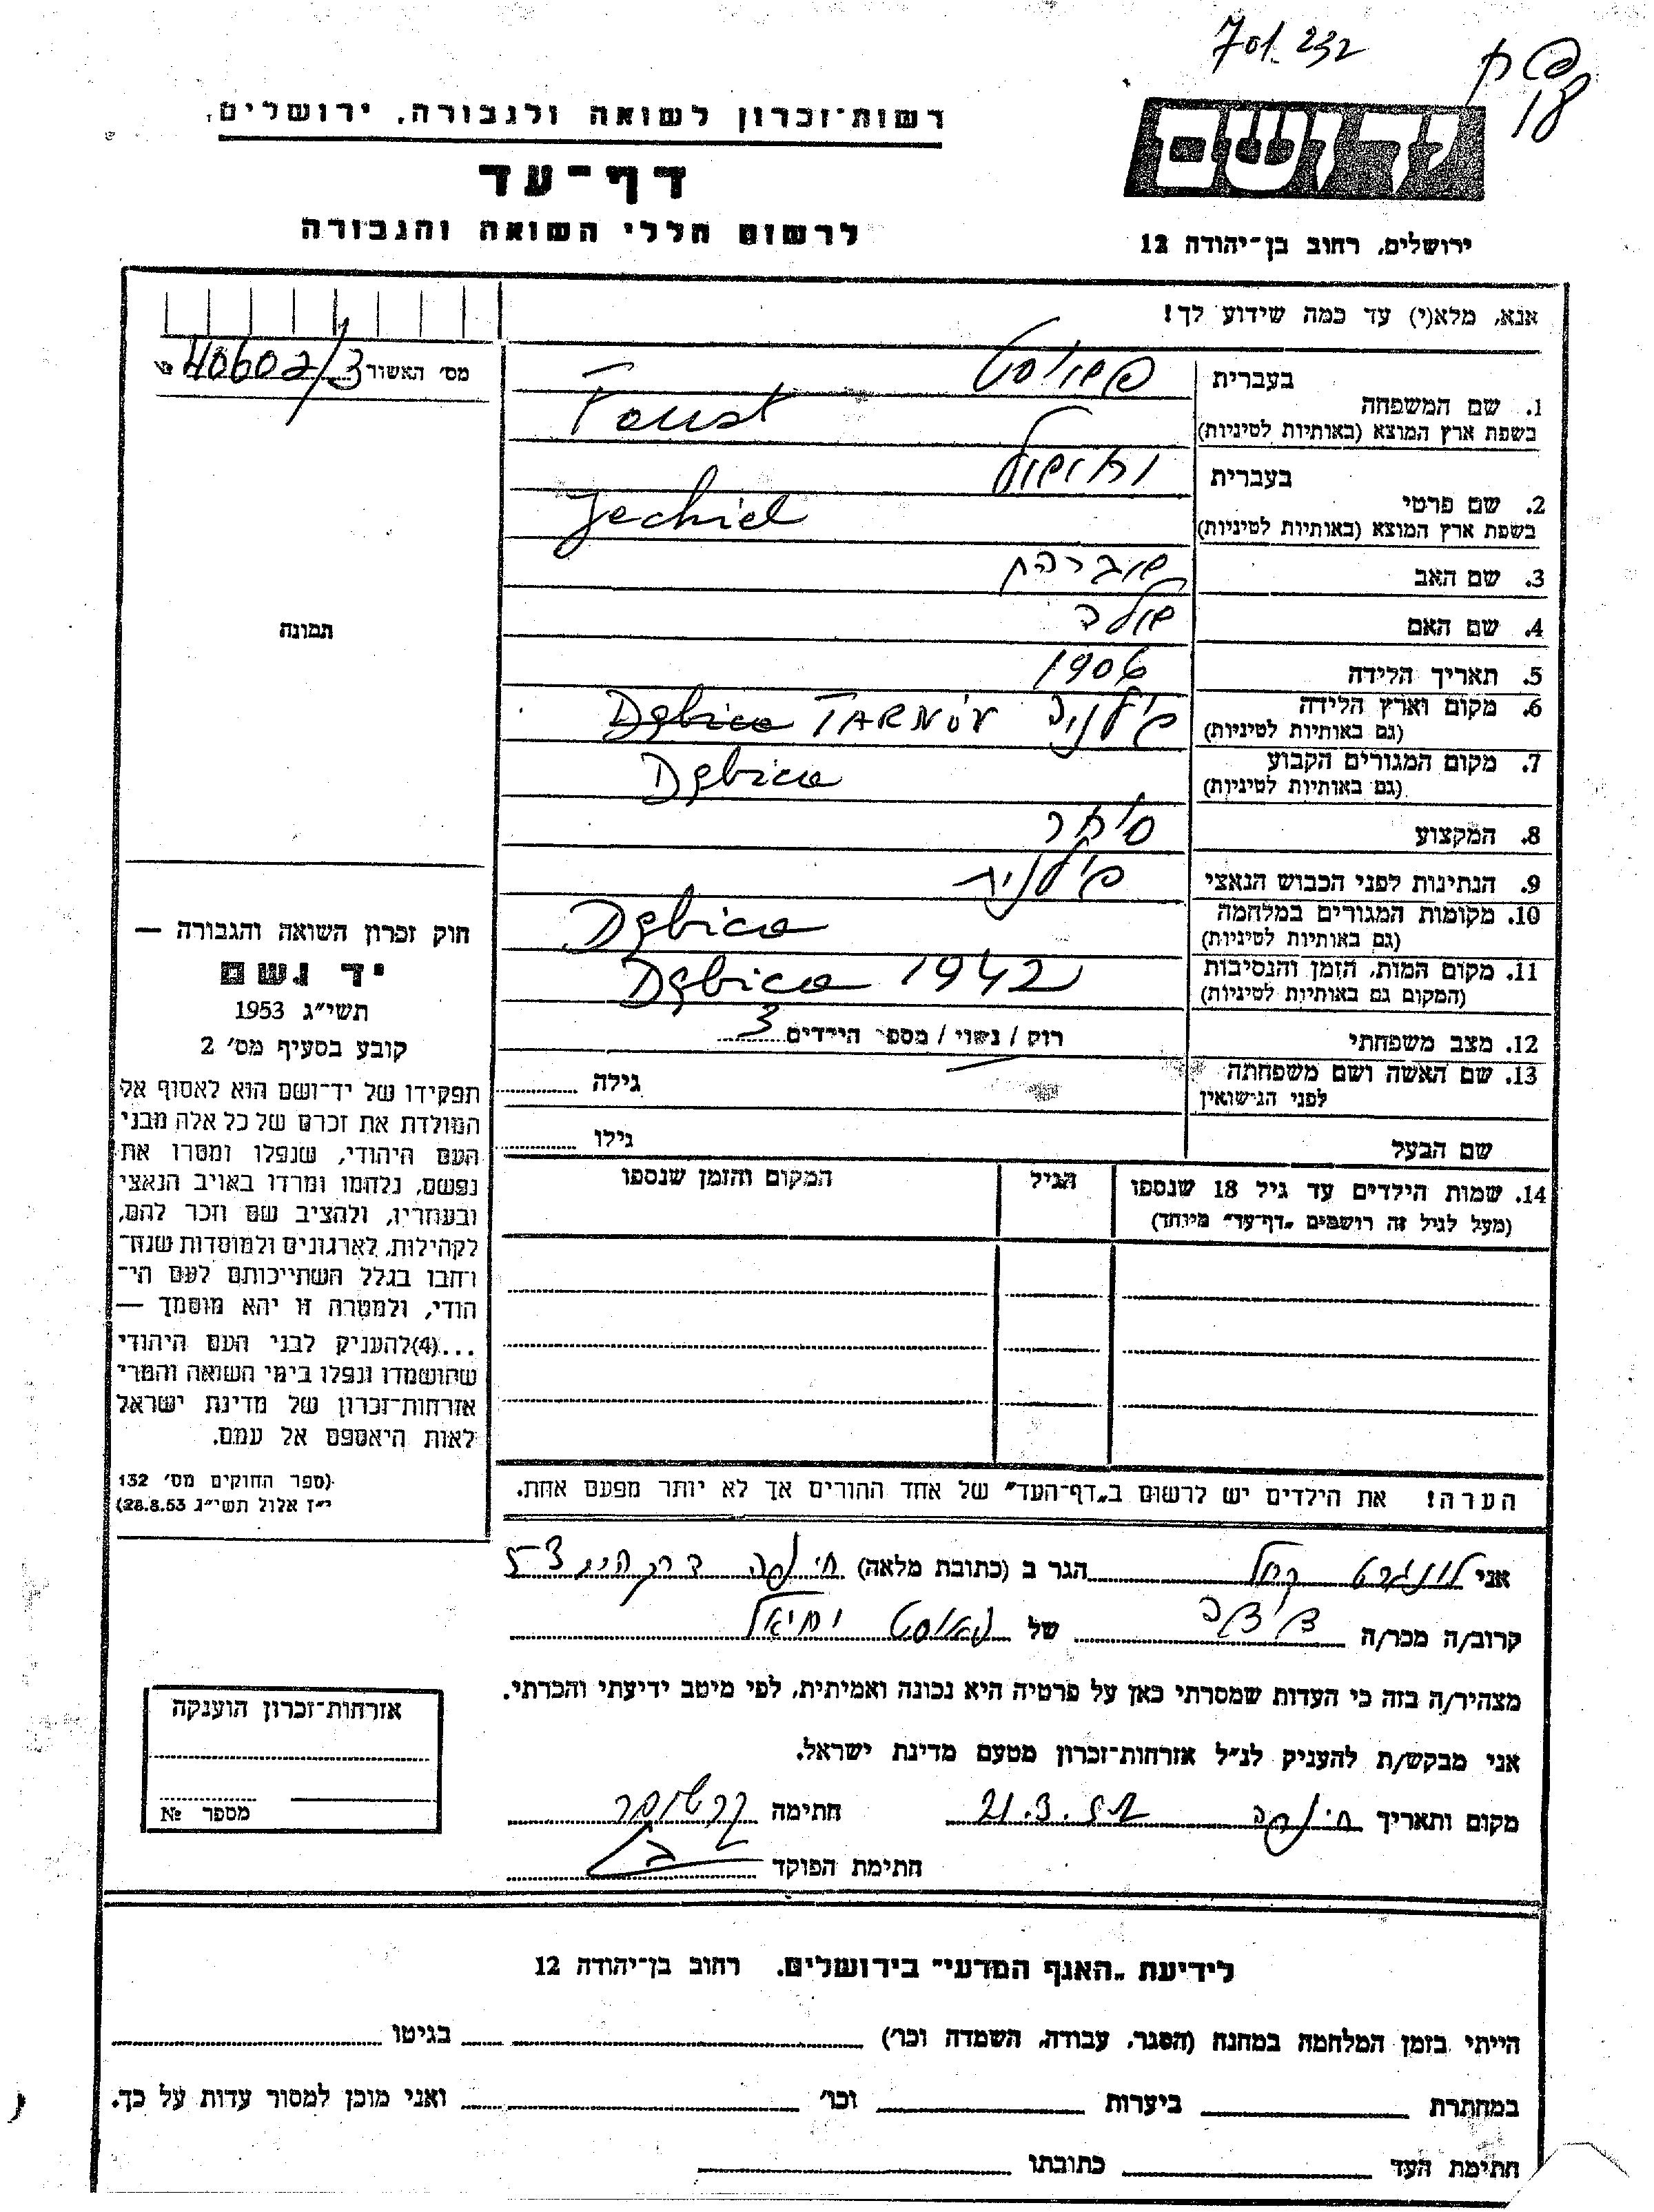 7o1. 232
18
רשות־זכרון לשואה ולגבורה, ירושלים
יד ושם
דף־עד
לרשום חללי השואה והגבורה
ירושלים, רחוב בן־יהודה 12
אנא, מלא(י) עד כמה שידוע לך!
מס׳ האשור 40602/3 №
1. שם המשפחה בעברית פאוסט
בשפת ארץ המוצא (באותיות לטיניות) Foust
2. שם פרטי בעברית יחיאל
בשפת ארץ המוצא (באותיות לטיניות) Jechiel
3. שם האב אברהם
4. שם האם
5. תאריך הלידה 1906
6. מקום וארץ הלידה (גם באותיות לטיניות) פולניה TARNÓV Dębica
7. מקום המגורים הקבוע (גם באותיות לטיניות) Dębica
8. המקצוע סוחר
9. הנתינות לפני הכבוש הנאצי פולנית
10. מקומות המגורים במלחמה (גם באותיות לטיניות) Dębica
11. מקום המות, הזמן והנסיבות (המקום גם באותיות לטיניות) Dębica 1942
12. מצב משפחתי רוק / נשוי / מספר הילדים 3
13. שם האשה ושם משפחתה לפני הנישואין גילה
שם הבעל גילו
14. שמות הילדים עד גיל 18 שנספו (מעל לגיל זה רושמים „דף־עד״ מיוחד) הגיל המקום והזמן שנספו
תמונה
חוק זכרון השואה והגבורה —
יד ושם
תשי״ג 1953
קובע בסעיף מס׳ 2
תפקידו של יד־ושם הוא לאסוף אל
המולדת את זכרם של כל אלה מבני
העם היהודי, שנפלו ומסרו את
נפשם, נלחמו ומרדו באויב הנאצי
ובעוזריו, ולהציב שם וזכר להם,
לקהילות, לארגונים ולמוסדות שנח־
רחבו בגלל השתייכותם לעם הי־
הודי, ולמטרה זו יהא מוסמך —
...(4)להעניק לבני העם היהודי
שהושמדו ונפלו בימי השואה והמרי
אזרחות־זכרון של מדינת ישראל
לאות היאספם אל עמם.
(ספר החוקים מס׳ 132
י״ז אלול תשי״ג 28.8.53)
הערה! את הילדים יש לרשום ב„דף־העד״ של אחד ההורים אך לא יותר מפעם אחת.
אני רחל הגר ב (כתובת מלאה) חיפה דרך הים 53
קרוב/ה מכר/ה דודה של פאוסט יחיאל
מצהיר/ה בזה כי העדות שמסרתי כאן על פרטיה היא נכונה ואמיתית, לפי מיטב ידיעתי והכרתי.
אני מבקש/ת להעניק לנ״ל אזרחות־זכרון מטעם מדינת ישראל.
מקום ותאריך חיפה 21.3. חתימה
חתימת הפוקד
אזרחות־זכרון הוענקה
מספר №
לידיעת „האגף המדעי״ בירושלים, רחוב בן־יהודה 12
הייתי בזמן המלחמה במחנה (הסגר, עבודה, השמדה וכו׳) בגיטו
במחתרת ביערות וכו׳ ואני מוכן למסור עדות על כך.
חתימת העד כתובתו